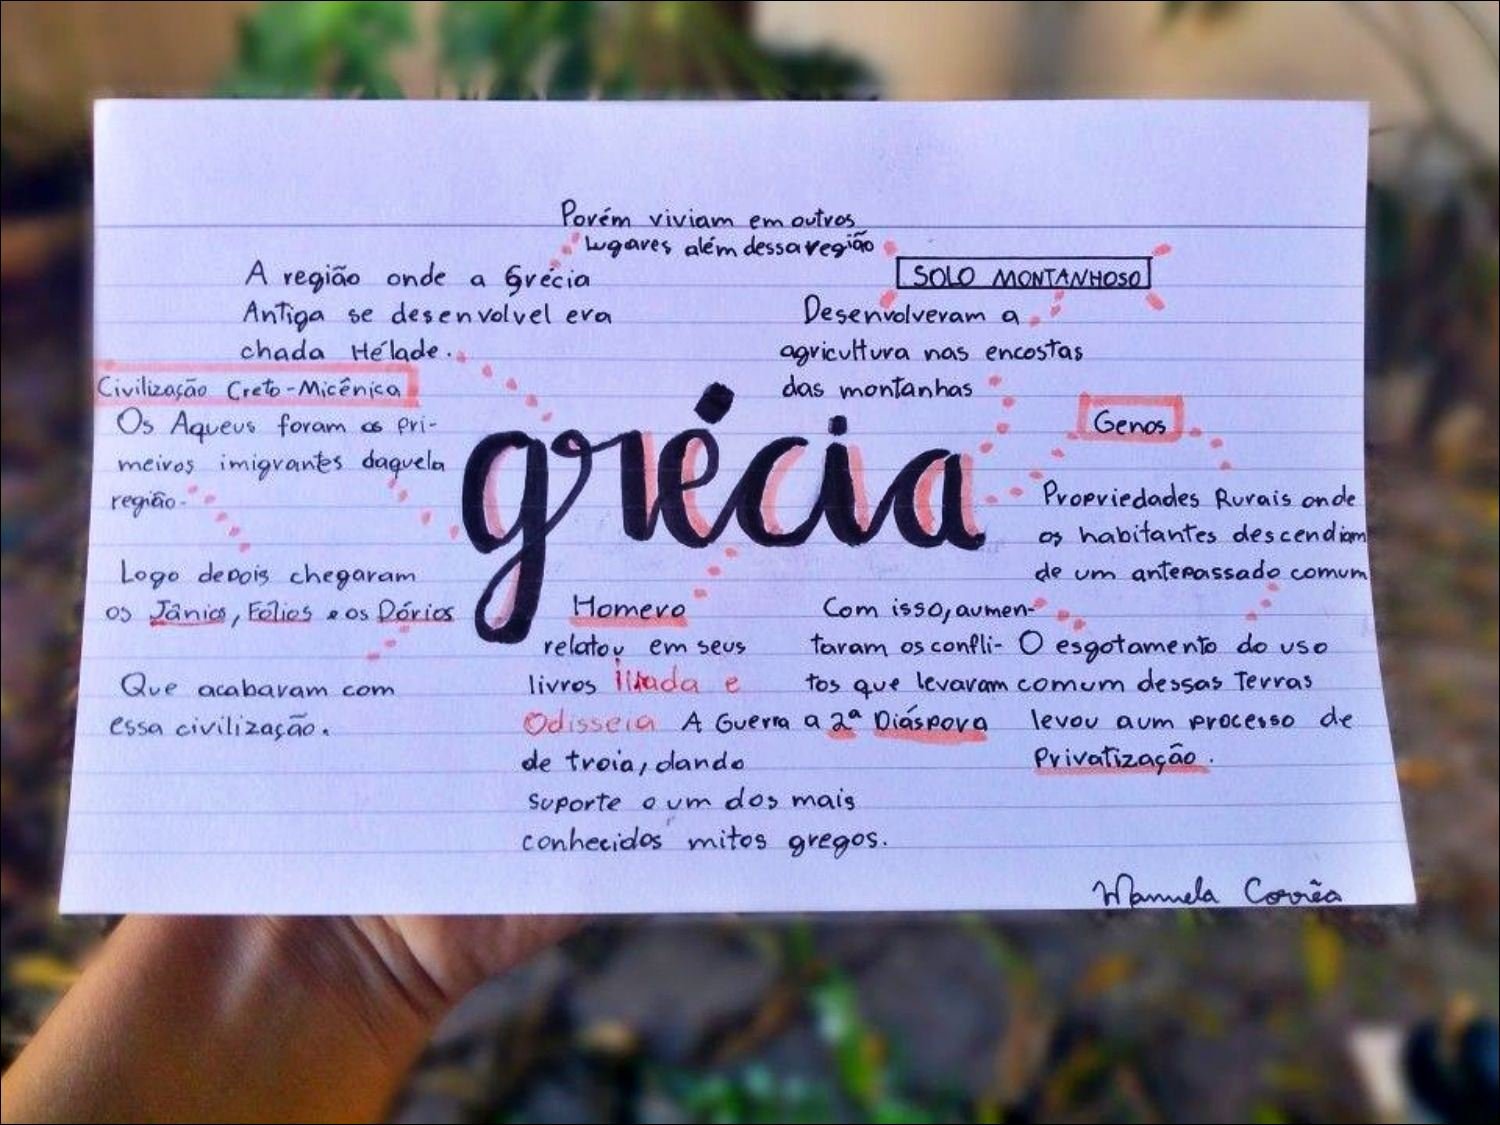 Porém viviam em outros
lugares além dessa região
A região onde a Grécia
Antiga se desenvolvel era
chada Hélade.
SOLO MONTANHOSO
Desenvolveram a
agricultura nas encostas
das montanhas
Civilização Creto-Micênica
Os Aqueus foram os pri-
meiros imigrantes daquela
região.
Logo depois chegaram
os Jânios, Fólios e os Dórios
Que acabaram com
essa civilização.
grécia
Genos
Propriedades Rurais onde
os habitantes descendiam
de um antepassado comum
O esgotamento do uso
comum dessas Terras
levou a um processo de
Privatização.
Com isso, aumen-
taram os confli-
tos que levaram
a 2ª Diáspora
Homero
relatou em seus
livros Ilíada e
Odisseia A Guerra
de troia, dando
suporte a um dos mais
conhecidos mitos gregos.
Manuela Corrêa